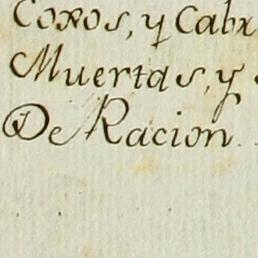 Coros, y Cabr
Muertas, y
De Racion.